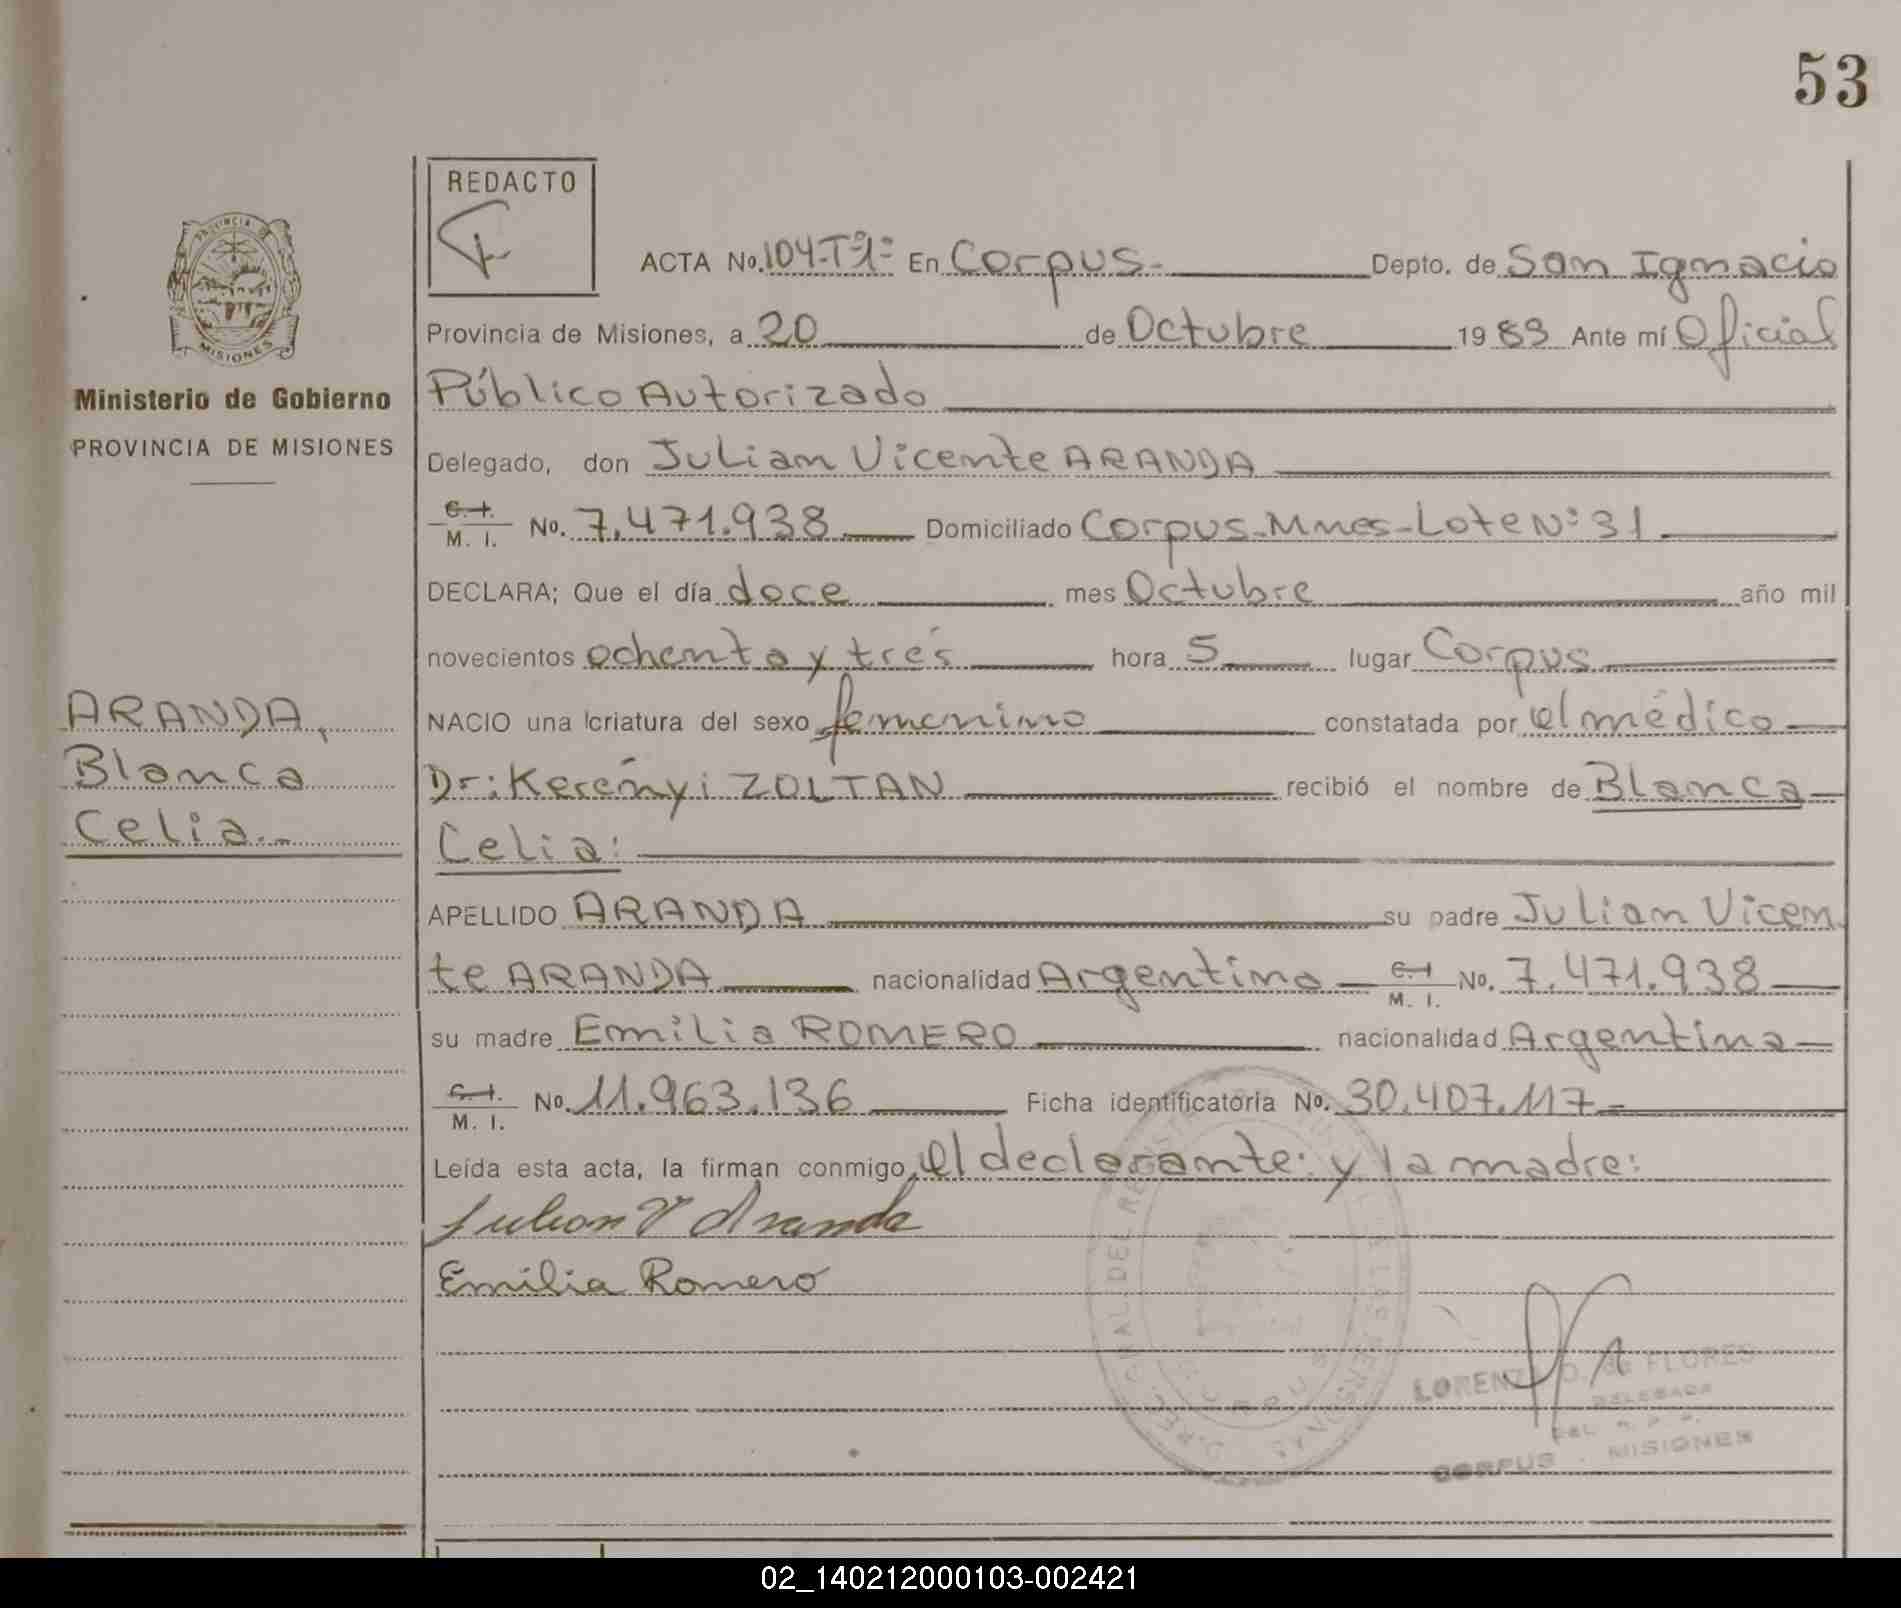 53
REDACTO
PROVINCIA DE
MISIONES
Ministerio de Gobierno
PROVINCIA DE MISIONES
ARANDA,
Blanca
Celia.-
ACTA No. 104-Tº1º- En Corpus.- Depto. de San Ignacio
Provincia de Misiones, a 20 de Octubre 1983 Ante mí Oficial
Público Autorizado
Delegado, don Julian Vicente ARANDA
C. I. M. I. No. 7.471.938 Domiciliado Corpus-Mnes-Lote Nº 31
DECLARA; Que el día doce mes Octubre año mil
novecientos ochenta y trés hora 5 lugar Corpus
NACIO una criatura del sexo femenino constatada por el médico
Dr: Kerényi ZOLTAN recibió el nombre de Blanca
Celia:
APELLIDO ARANDA su padre Julian Vicen
te ARANDA nacionalidad Argentina C. I. M. I. No. 7.471.938
su madre Emilia ROMERO nacionalidad Argentina
C. I. M. I. No. 11.963.136 Ficha identificatoria No. 30.407.117-
Leída esta acta, la firman conmigo, el declarante: y la madre:
Julian V Aranda
Emilia Romero
FLORES
DELEGADA
CORPUS - MISIONES
02_140212000103-002421